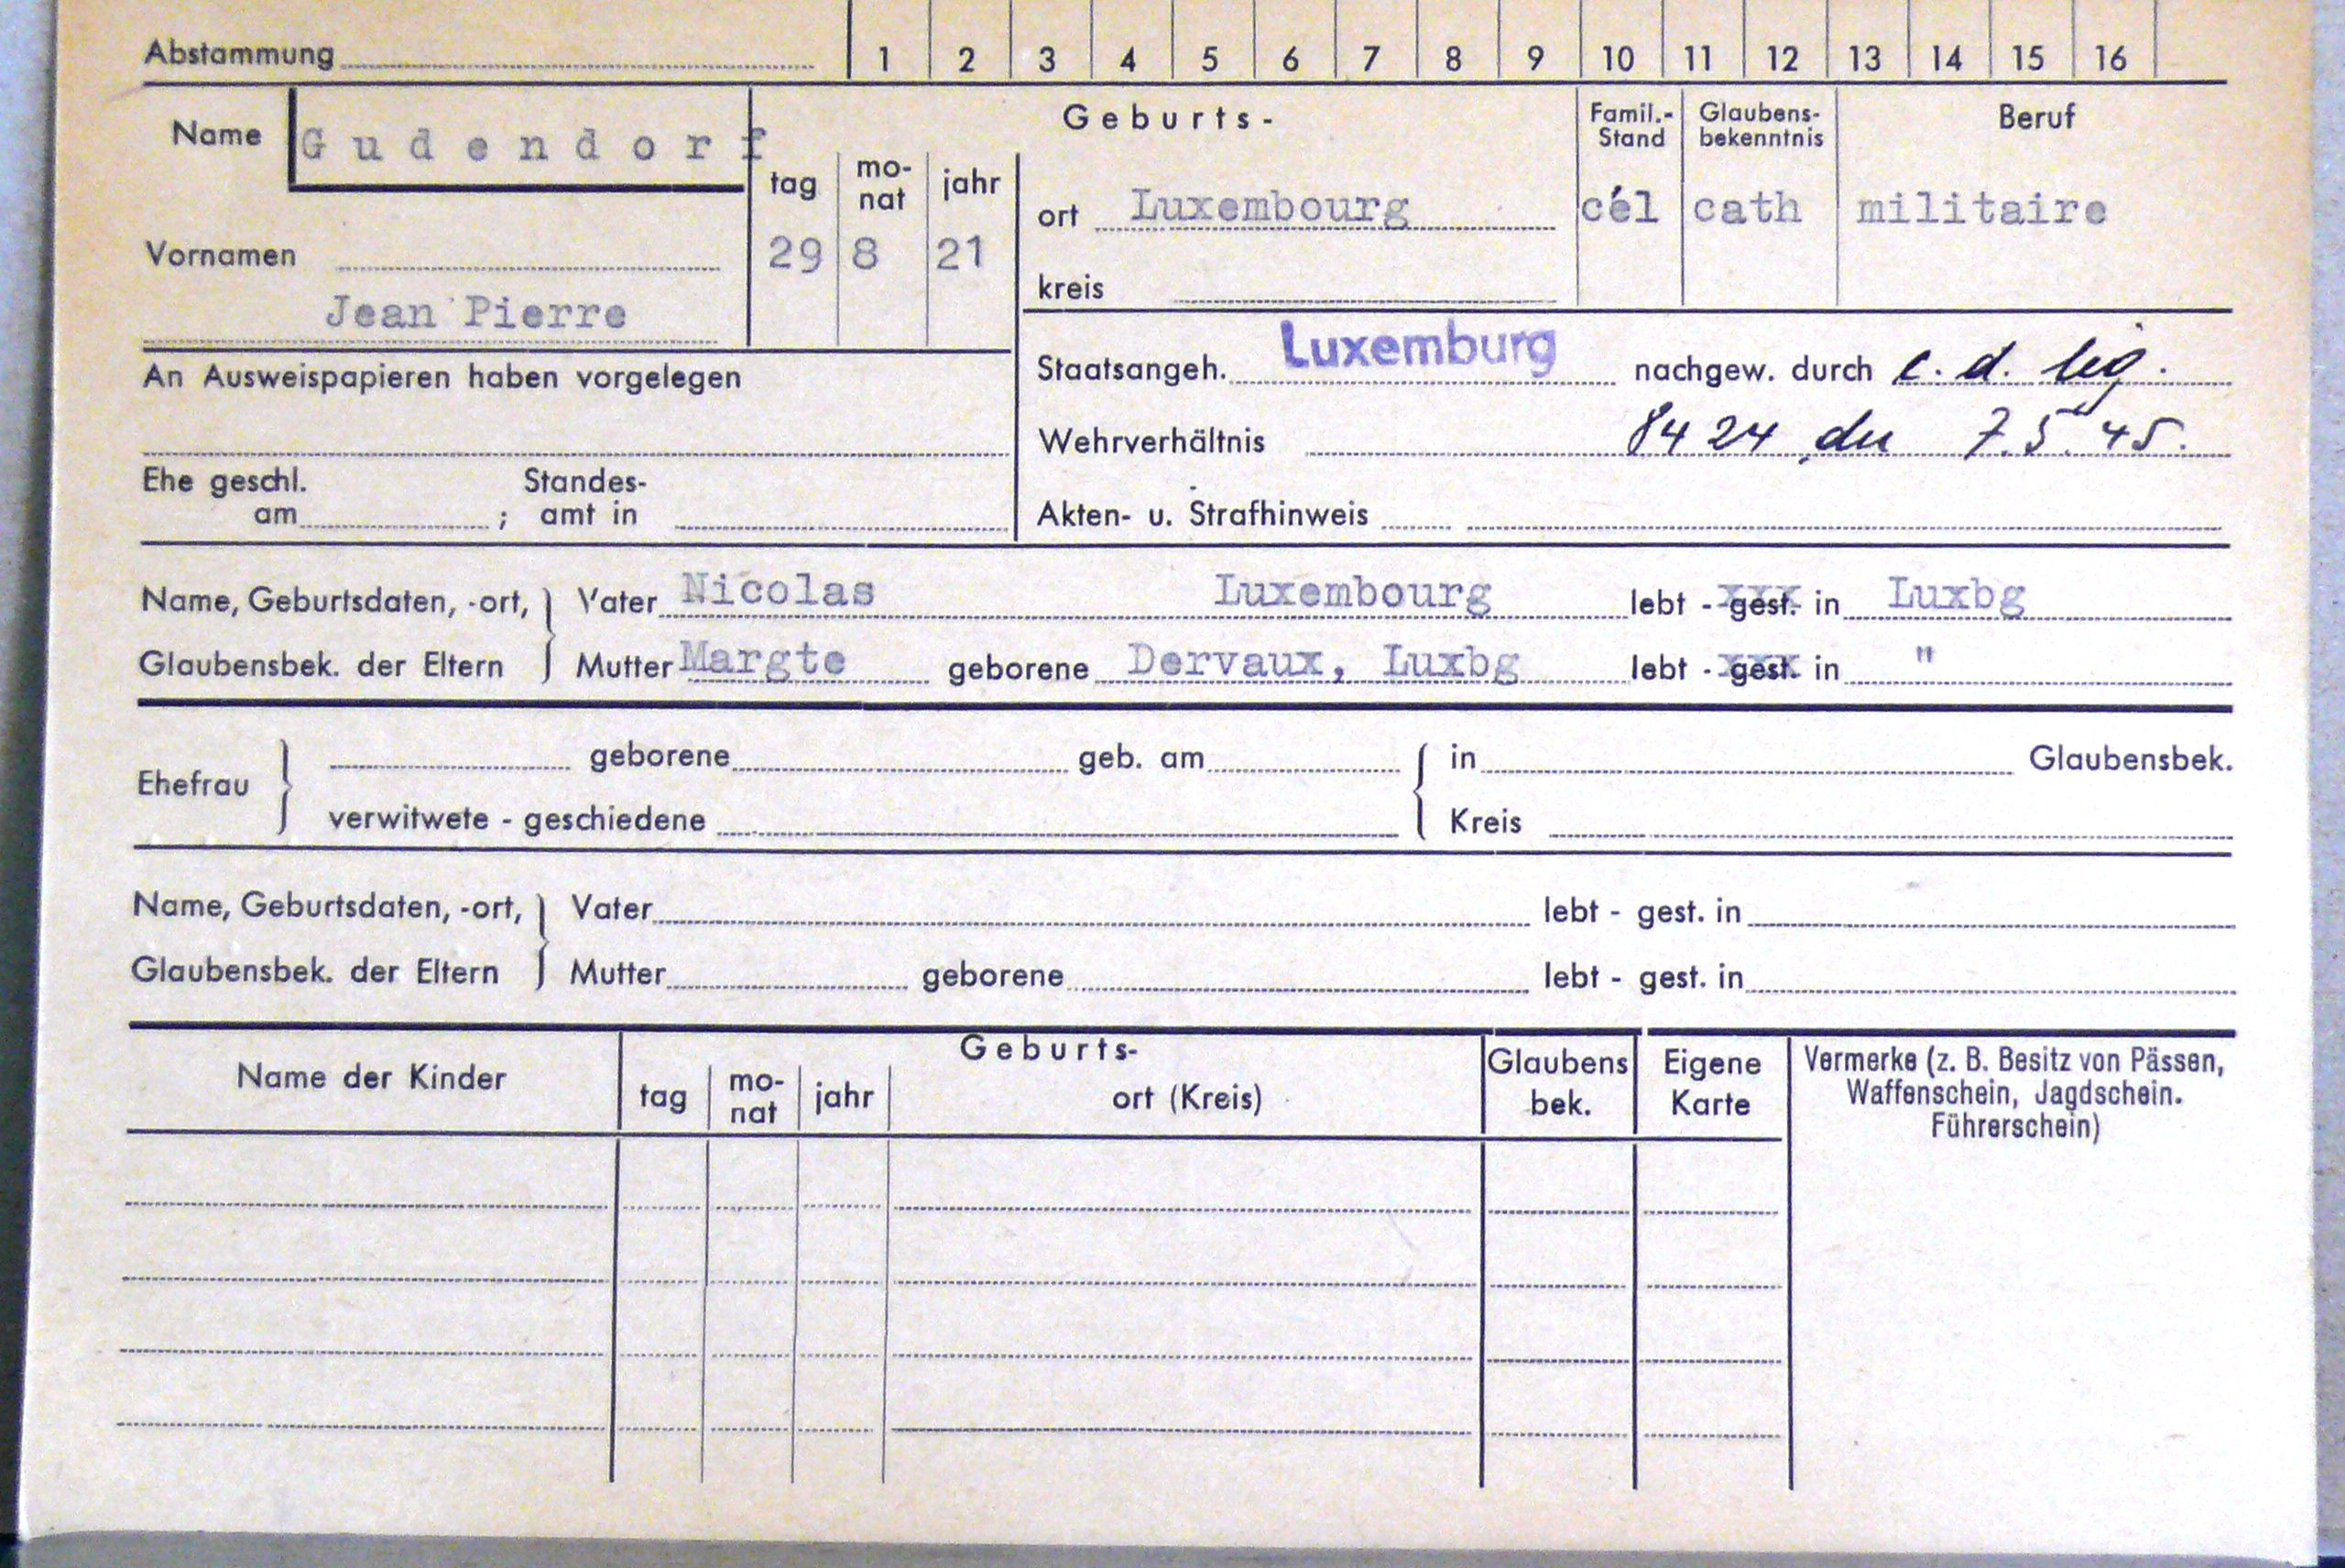 Abstammung 1 2 3 4 5 6 7 8 9 10 11 12 13 14 15 16
Name Gudendorf
Geburts-
tag mo-nat jahr
29 8 21
ort Luxembourg
kreis
Famil.-Stand
cél
Glaubens-bekenntnis
cath
Beruf
militaire
Vornamen
Jean Pierre
An Ausweispapieren haben vorgelegen
Staatsangeh. Luxemburg nachgew. durch c. d. leg.
Wehrverhältnis 8424 du 7.5.45.
Ehe geschl. am ; Standes-amt in
Akten- u. Strafhinweis
Name, Geburtsdaten, -ort, Vater Nicolas Luxembourg lebt - gest. in Luxbg
Glaubensbek. der Eltern Mutter Margte geborene Dervaux, Luxbg lebt - gest. in "
Ehefrau geborene geb. am in Glaubensbek.
verwitwete - geschiedene Kreis
Name, Geburtsdaten, -ort, Vater lebt - gest. in
Glaubensbek. der Eltern Mutter geborene lebt - gest. in
Name der Kinder
Geburts-
tag mo-nat jahr ort (Kreis)
Glaubens bek.
Eigene Karte
Vermerke (z. B. Besitz von Pässen,
Waffenschein, Jagdschein.
Führerschein)